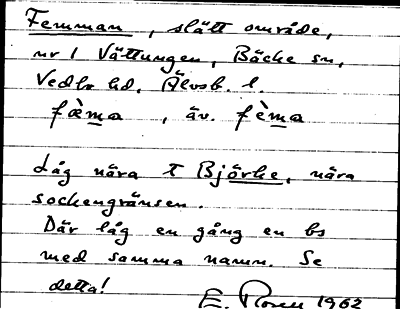 Femman, slätt område,
nr 1 Vättungen, Bäcke sn,
Vedbo hd, Älvsb. l.
fæ̀ma, äv. fèma
Låg nära t Björke, nära
sockengränsen.
Där låg en gång en bs
med samma namn. Se
detta!
E. Rosen 1962